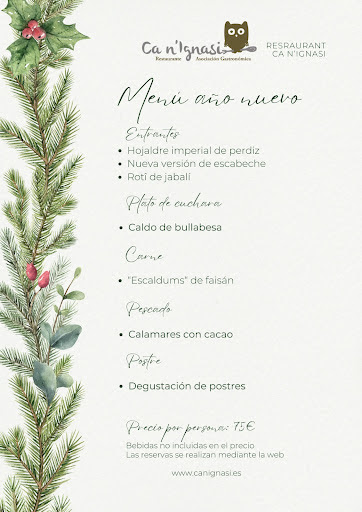 Ca n'Ignasi
Restaurante Asociación Gastronómica
RESRAURANT
CA N'IGNASI
Menú año nuevo
Entrantes
• Hojaldre imperial de perdiz
• Nueva versión de escabeche
• Roti de jabalí
Plato de cuchara
• Caldo de bullabesa
Carne
• "Escaldums" de faisán
Pescado
• Calamares con cacao
Postre
• Degustación de postres
Precio por persona: 75€
Bebidas no incluidas en el precio
Las reservas se realizan mediante la web
www.canignasi.es